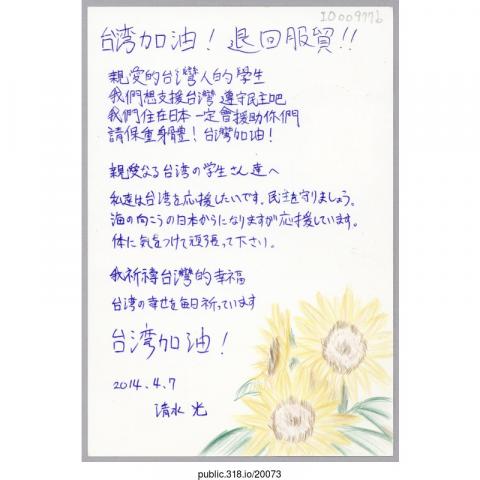 IO009776
台湾加油！退回服貿!!
親愛的台灣人的學生
我們想支援台灣 遵守民主吧
我們住在日本 一定會援助你們
請保重身體！台灣加油！
親愛なる台湾の学生さん達へ
私達は台湾を応援したいです。民主を守りましょう。
海の向こうの日本からになりますが応援しています。
体に気をつけて頑張って下さい。
我祈禱台灣的幸福
台湾の幸せを毎日祈っています
台湾加油！
2014.4.7
清水 光
public.318.io/20073